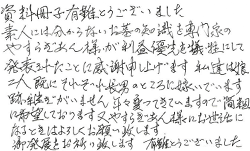 資料冊子有難とうございました
素人には分からないお墓の知識を専門家の
やすらぎあん様が利益優先を犠牲にして
発表されたことに感謝申し上げます 私達は娘
二人既にそれぞれ長男のところに嫁いでいます
跡継ぎがいません 年々重ってきていますので簡粗
に希望しております 又やすらぎあん様にお世話に
なるときはよろしくお願い致します
御発展をお祈り致します 有難とうございました